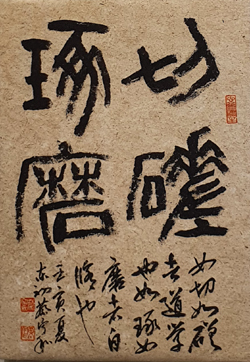 切磋
琢磨
如切如磋
者道学
也如琢如
磨者自
脩也
壬寅夏